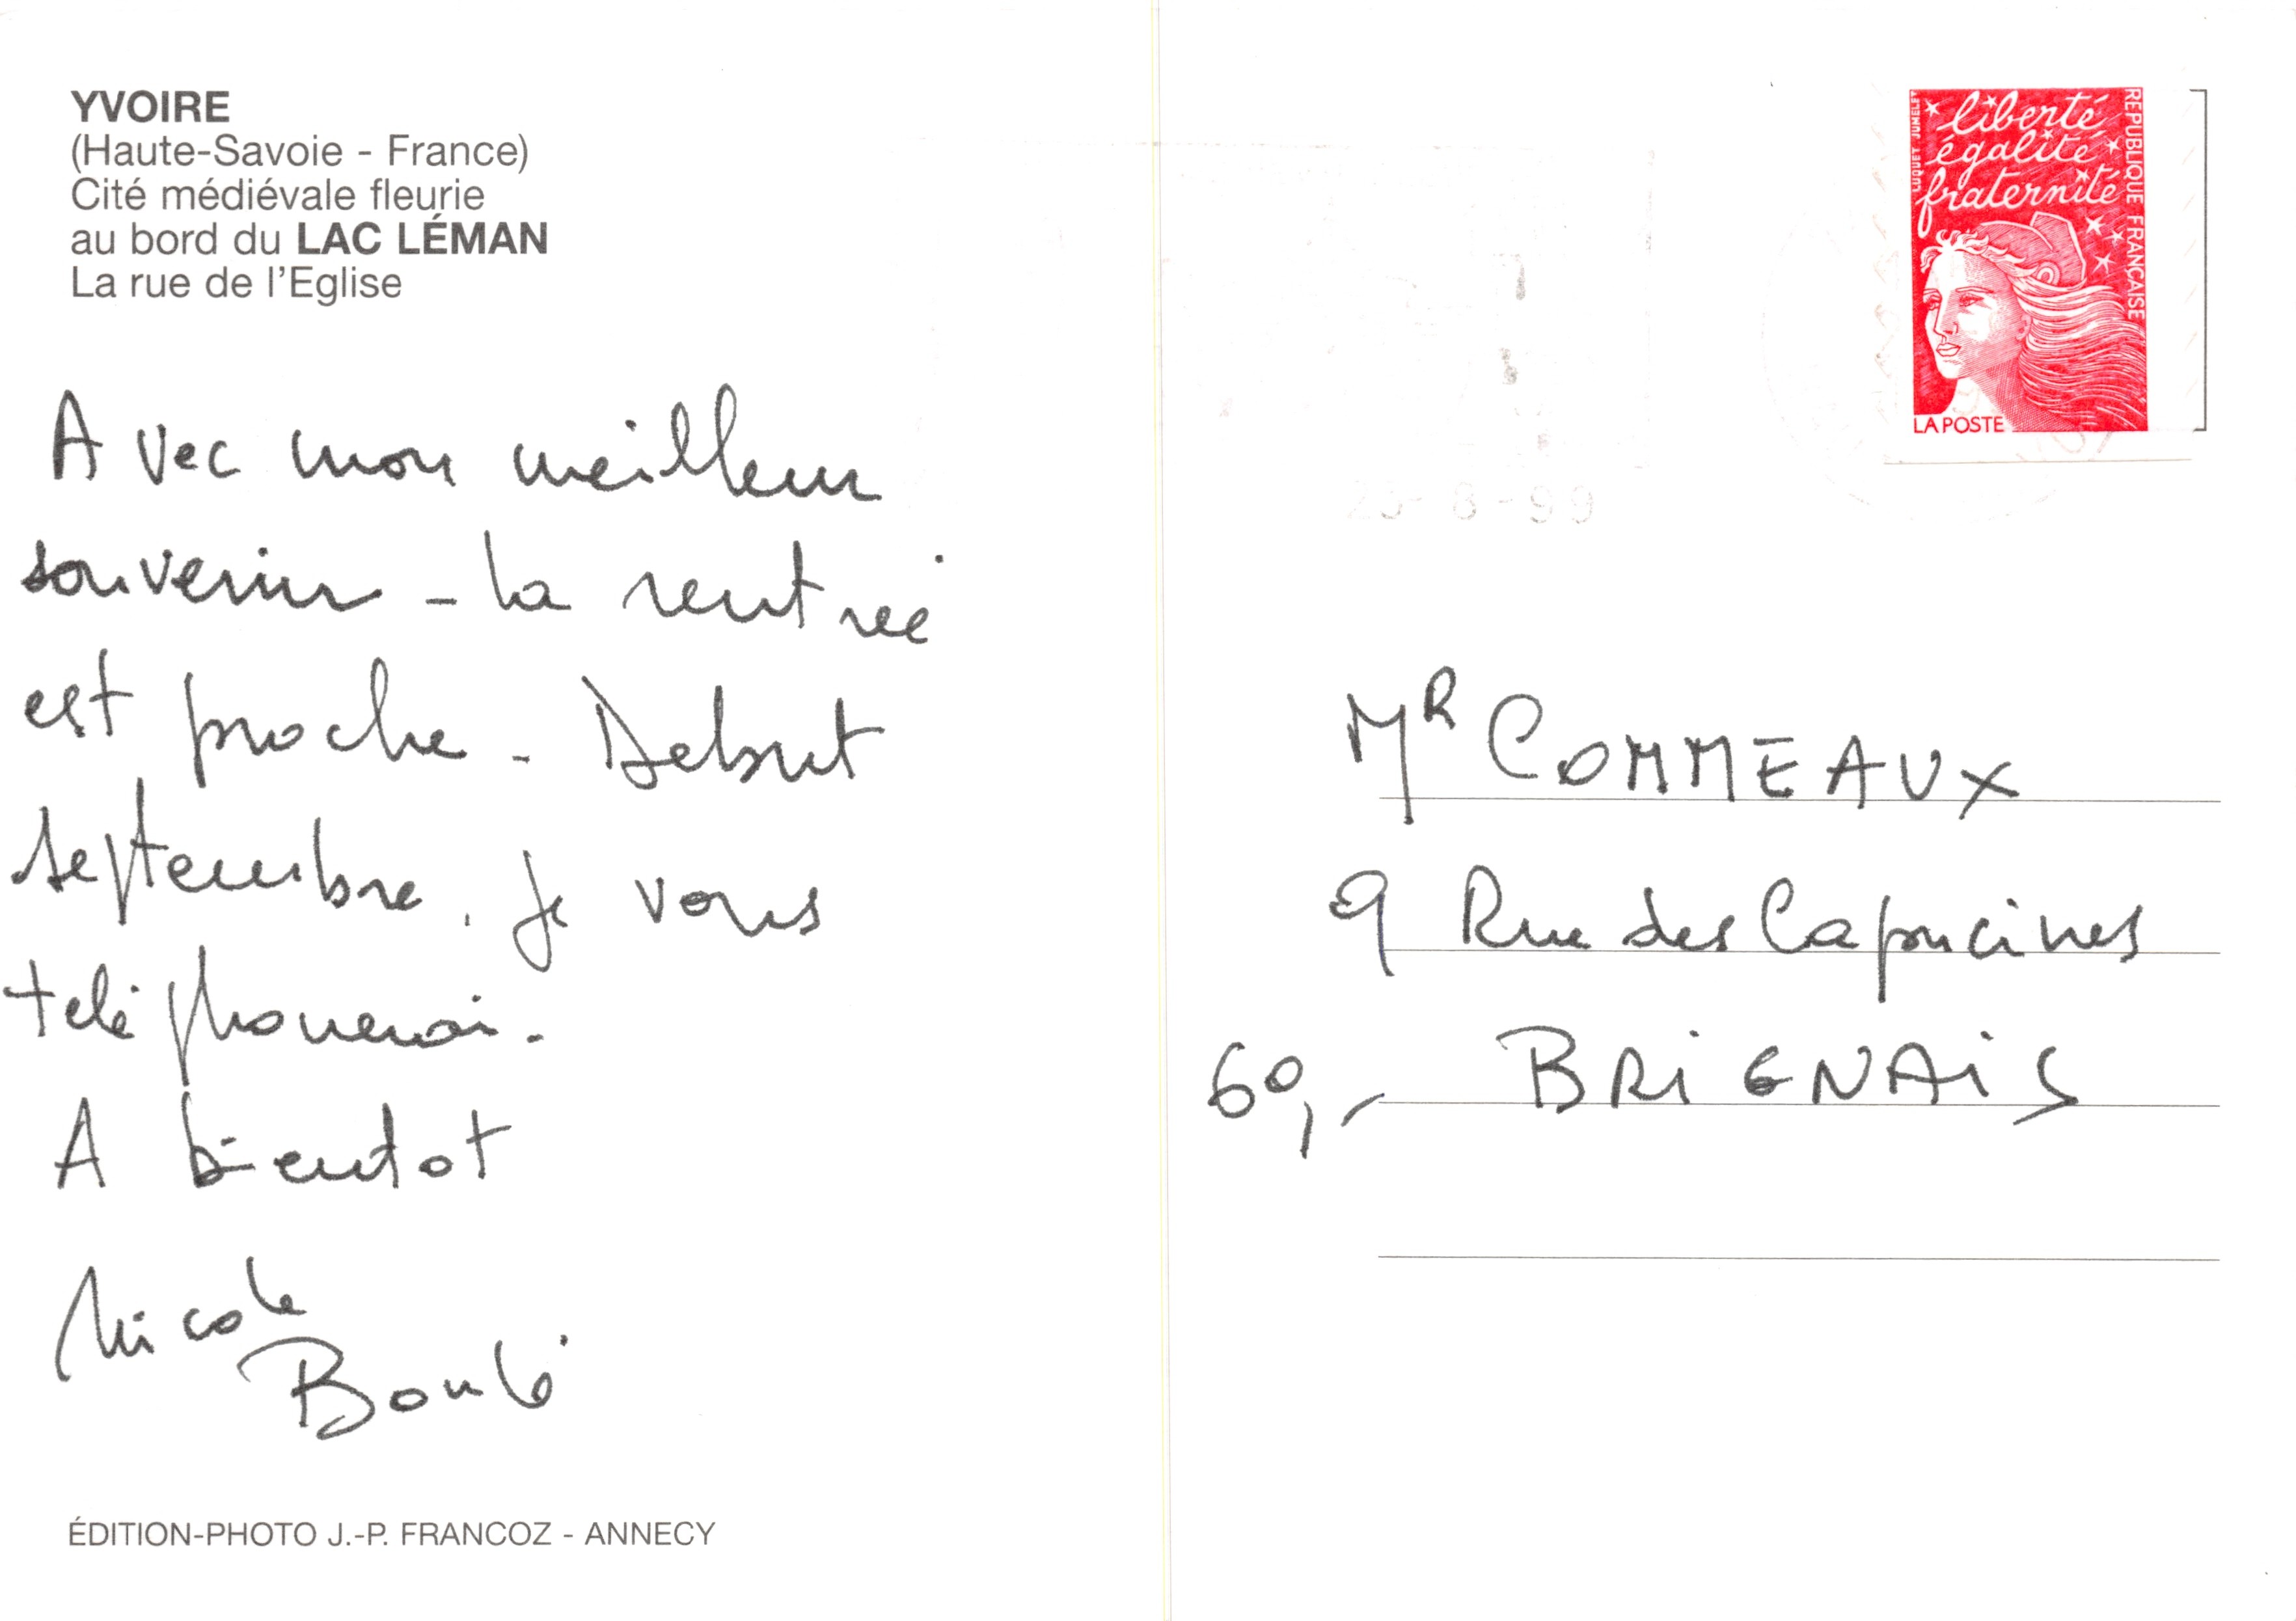 YVOIRE
(Haute-Savoie - France)
Cité médiévale fleurie
au bord du LAC LÉMAN
La rue de l'Eglise
Avec mon meilleur
souvenir - la rentrée
est proche - Debut
septembre, je vous
teléphonerai -
A bientot
Nicole
Boulé
ÉDITION-PHOTO J.-P. FRANCOZ - ANNECY
LUQUET JUMELET
liberté
égalité
fraternité
REPUBLIQUE FRANÇAISE
LA POSTE
8-99
MR COMMEAUX
9 Rue des Capucines
69,- BRIGNAIS